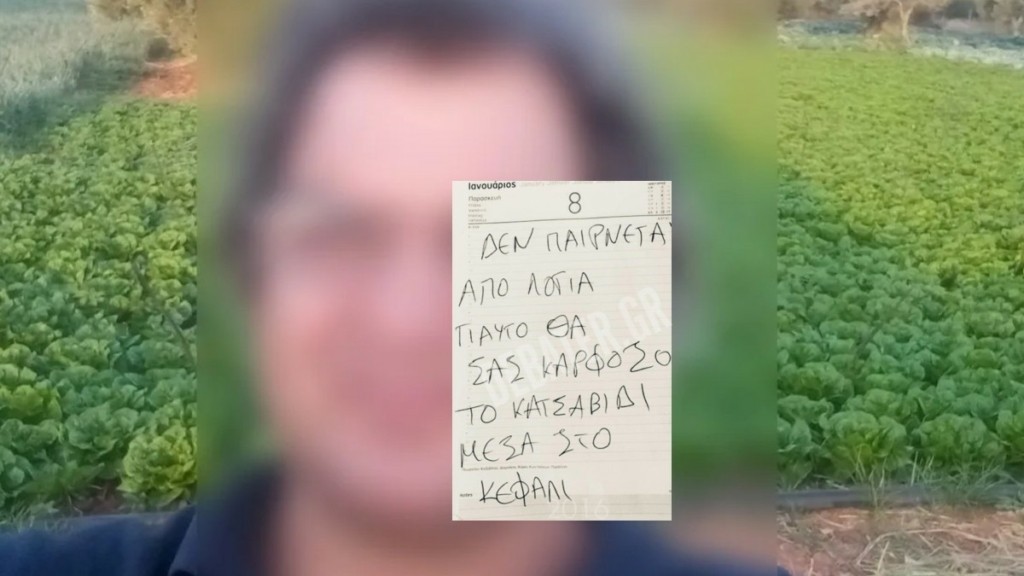 Ιανουάριος
Παρασκευή
8
ΔΕΝ ΠΑΙΡΝΕΤΑ
ΑΠΟ ΛΟΓΙΑ
ΓΙΑΥΤΟ ΘΑ
ΣΑΣ ΚΑΡΦΟΣΟ
ΤΟ ΚΑΤΣΑΒΙΔΙ
ΜΕΣΑ ΣΤΟ
ΚΕΦΑΛΙ
2016